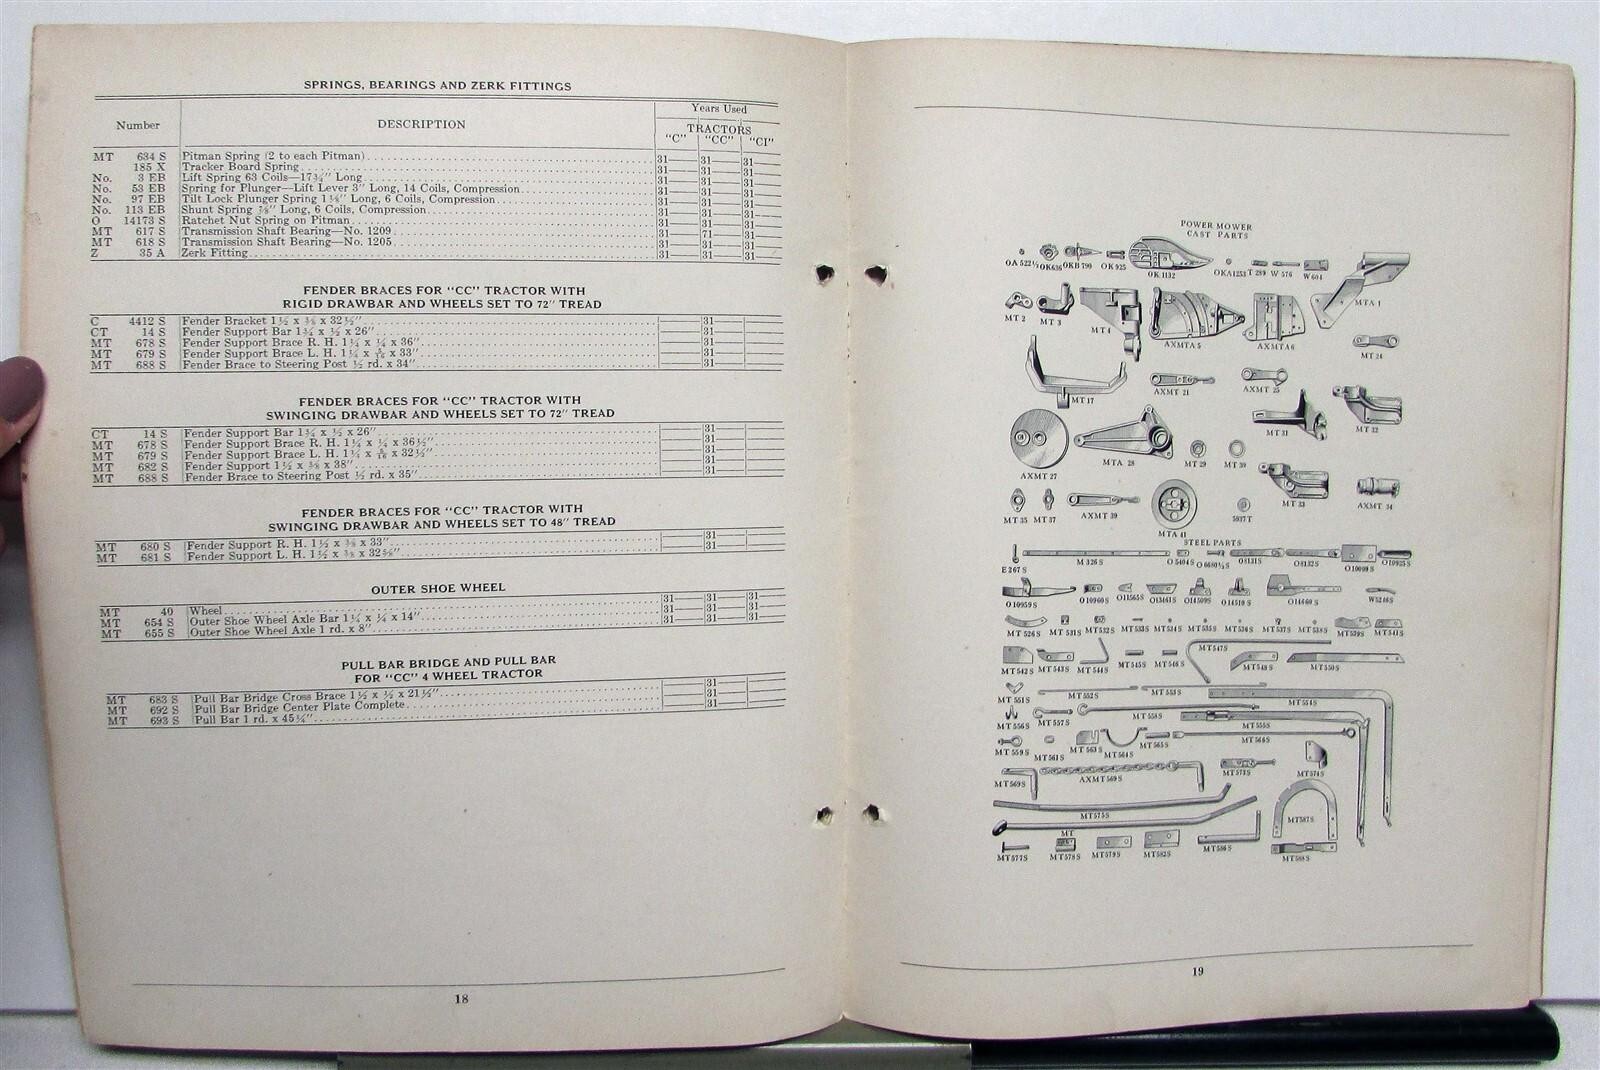 SPRINGS, BEARINGS AND ZERK FITTINGS
Number DESCRIPTION Years Used
TRACTORS
"C" "CC" "CI"
MT 634 S Pitman Spring (2 to each Pitman) 31 31 31
185 X Tracker Board Spring 31 31 31
No. 3 EB Lift Spring 63 Coils—17¾" Long 31 31 31
No. 53 EB Spring for Plunger—Lift Lever 3" Long, 14 Coils, Compression 31 31 31
No. 97 EB Tilt Lock Plunger Spring 1⅛" Long, 6 Coils, Compression 31 31 31
No. 113 EB Shunt Spring ⅞" Long, 6 Coils, Compression 31 31 31
O 14173 S Ratchet Nut Spring on Pitman 31 31 31
MT 617 S Transmission Shaft Bearing—No. 1209 31 71 31
MT 618 S Transmission Shaft Bearing—No. 1205 31 31 31
Z 35 A Zerk Fitting 31 31 31
FENDER BRACES FOR "CC" TRACTOR WITH
RIGID DRAWBAR AND WHEELS SET TO 72" TREAD
C 4412 S Fender Bracket 1½ x ⅜ x 32½" 31
CT 14 S Fender Support Bar 1¾ x ½ x 26" 31
MT 678 S Fender Support Brace R. H. 1¼ x ¼ x 36" 31
MT 679 S Fender Support Brace L. H. 1¼ x 5/16 x 33" 31
MT 688 S Fender Brace to Steering Post ½ rd. x 34" 31
FENDER BRACES FOR "CC" TRACTOR WITH
SWINGING DRAWBAR AND WHEELS SET TO 72" TREAD
CT 14 S Fender Support Bar 1¾ x ½ x 26" 31
MT 678 S Fender Support Brace R. H. 1¼ x ¼ x 36½" 31
MT 679 S Fender Support Brace L. H. 1¼ x 5/16 x 32½" 31
MT 682 S Fender Support 1½ x ⅜ x 38" 31
MT 688 S Fender Brace to Steering Post ½ rd. x 35" 31
FENDER BRACES FOR "CC" TRACTOR WITH
SWINGING DRAWBAR AND WHEELS SET TO 48" TREAD
MT 680 S Fender Support R. H. 1½ x ⅜ x 33" 31
MT 681 S Fender Support L. H. 1½ x ⅜ x 32⅝" 31
OUTER SHOE WHEEL
MT 40 Wheel 31 31 31
MT 654 S Outer Shoe Wheel Axle Bar 1¼ x ¼ x 14" 31 31 31
MT 655 S Outer Shoe Wheel Axle 1 rd. x 8" 31 31 31
PULL BAR BRIDGE AND PULL BAR
FOR "CC" 4 WHEEL TRACTOR
MT 683 S Pull Bar Bridge Cross Brace 1½ x ½ x 21½" 31
MT 692 S Pull Bar Bridge Center Plate Complete 31
MT 693 S Pull Bar 1 rd. x 45¾" 31
18
POWER MOWER
CAST PARTS
OA 522½ OK636 OKB 790 OK 925 OK 1132 OKA1253 T 289 W 576 W 604
MT 2 MT 3 MT 4 AXMTA 5 AXMTA 6 MTA 1
MT 24
MT 17 AXMT 21 AXMT 25
AXMT 27 MTA 28 MT 29 MT 30 MT 31 MT 32
MT 35 MT 37 AXMT 39 MTA 41 5937T MT 33 AXMT 34
STEEL PARTS
E 267 S M 326 S O 5404 S O 6680½ S O8131S O8132S O10099 S O10925 S
O 10959 S O10960 S O11565S O13461 S O14509S O14510 S O14660 S W5246S
MT 526 S MT 531S MT532S MT533S MT534S MT535S MT536S MT537S MT538S MT539S MT541S
MT542S MT543S MT544S MT545S MT546S MT547S MT548S MT550S
MT551S MT552S MT553S MT554S
MT556S MT557S MT558S MT555S
MT 559S MT561S MT563S MT564S MT565S MT566S
MT569S AXMT569S MT573S MT574S
MT575S
MT
MT577S MT578S MT579S MT582S MT586S MT587S MT588S
19